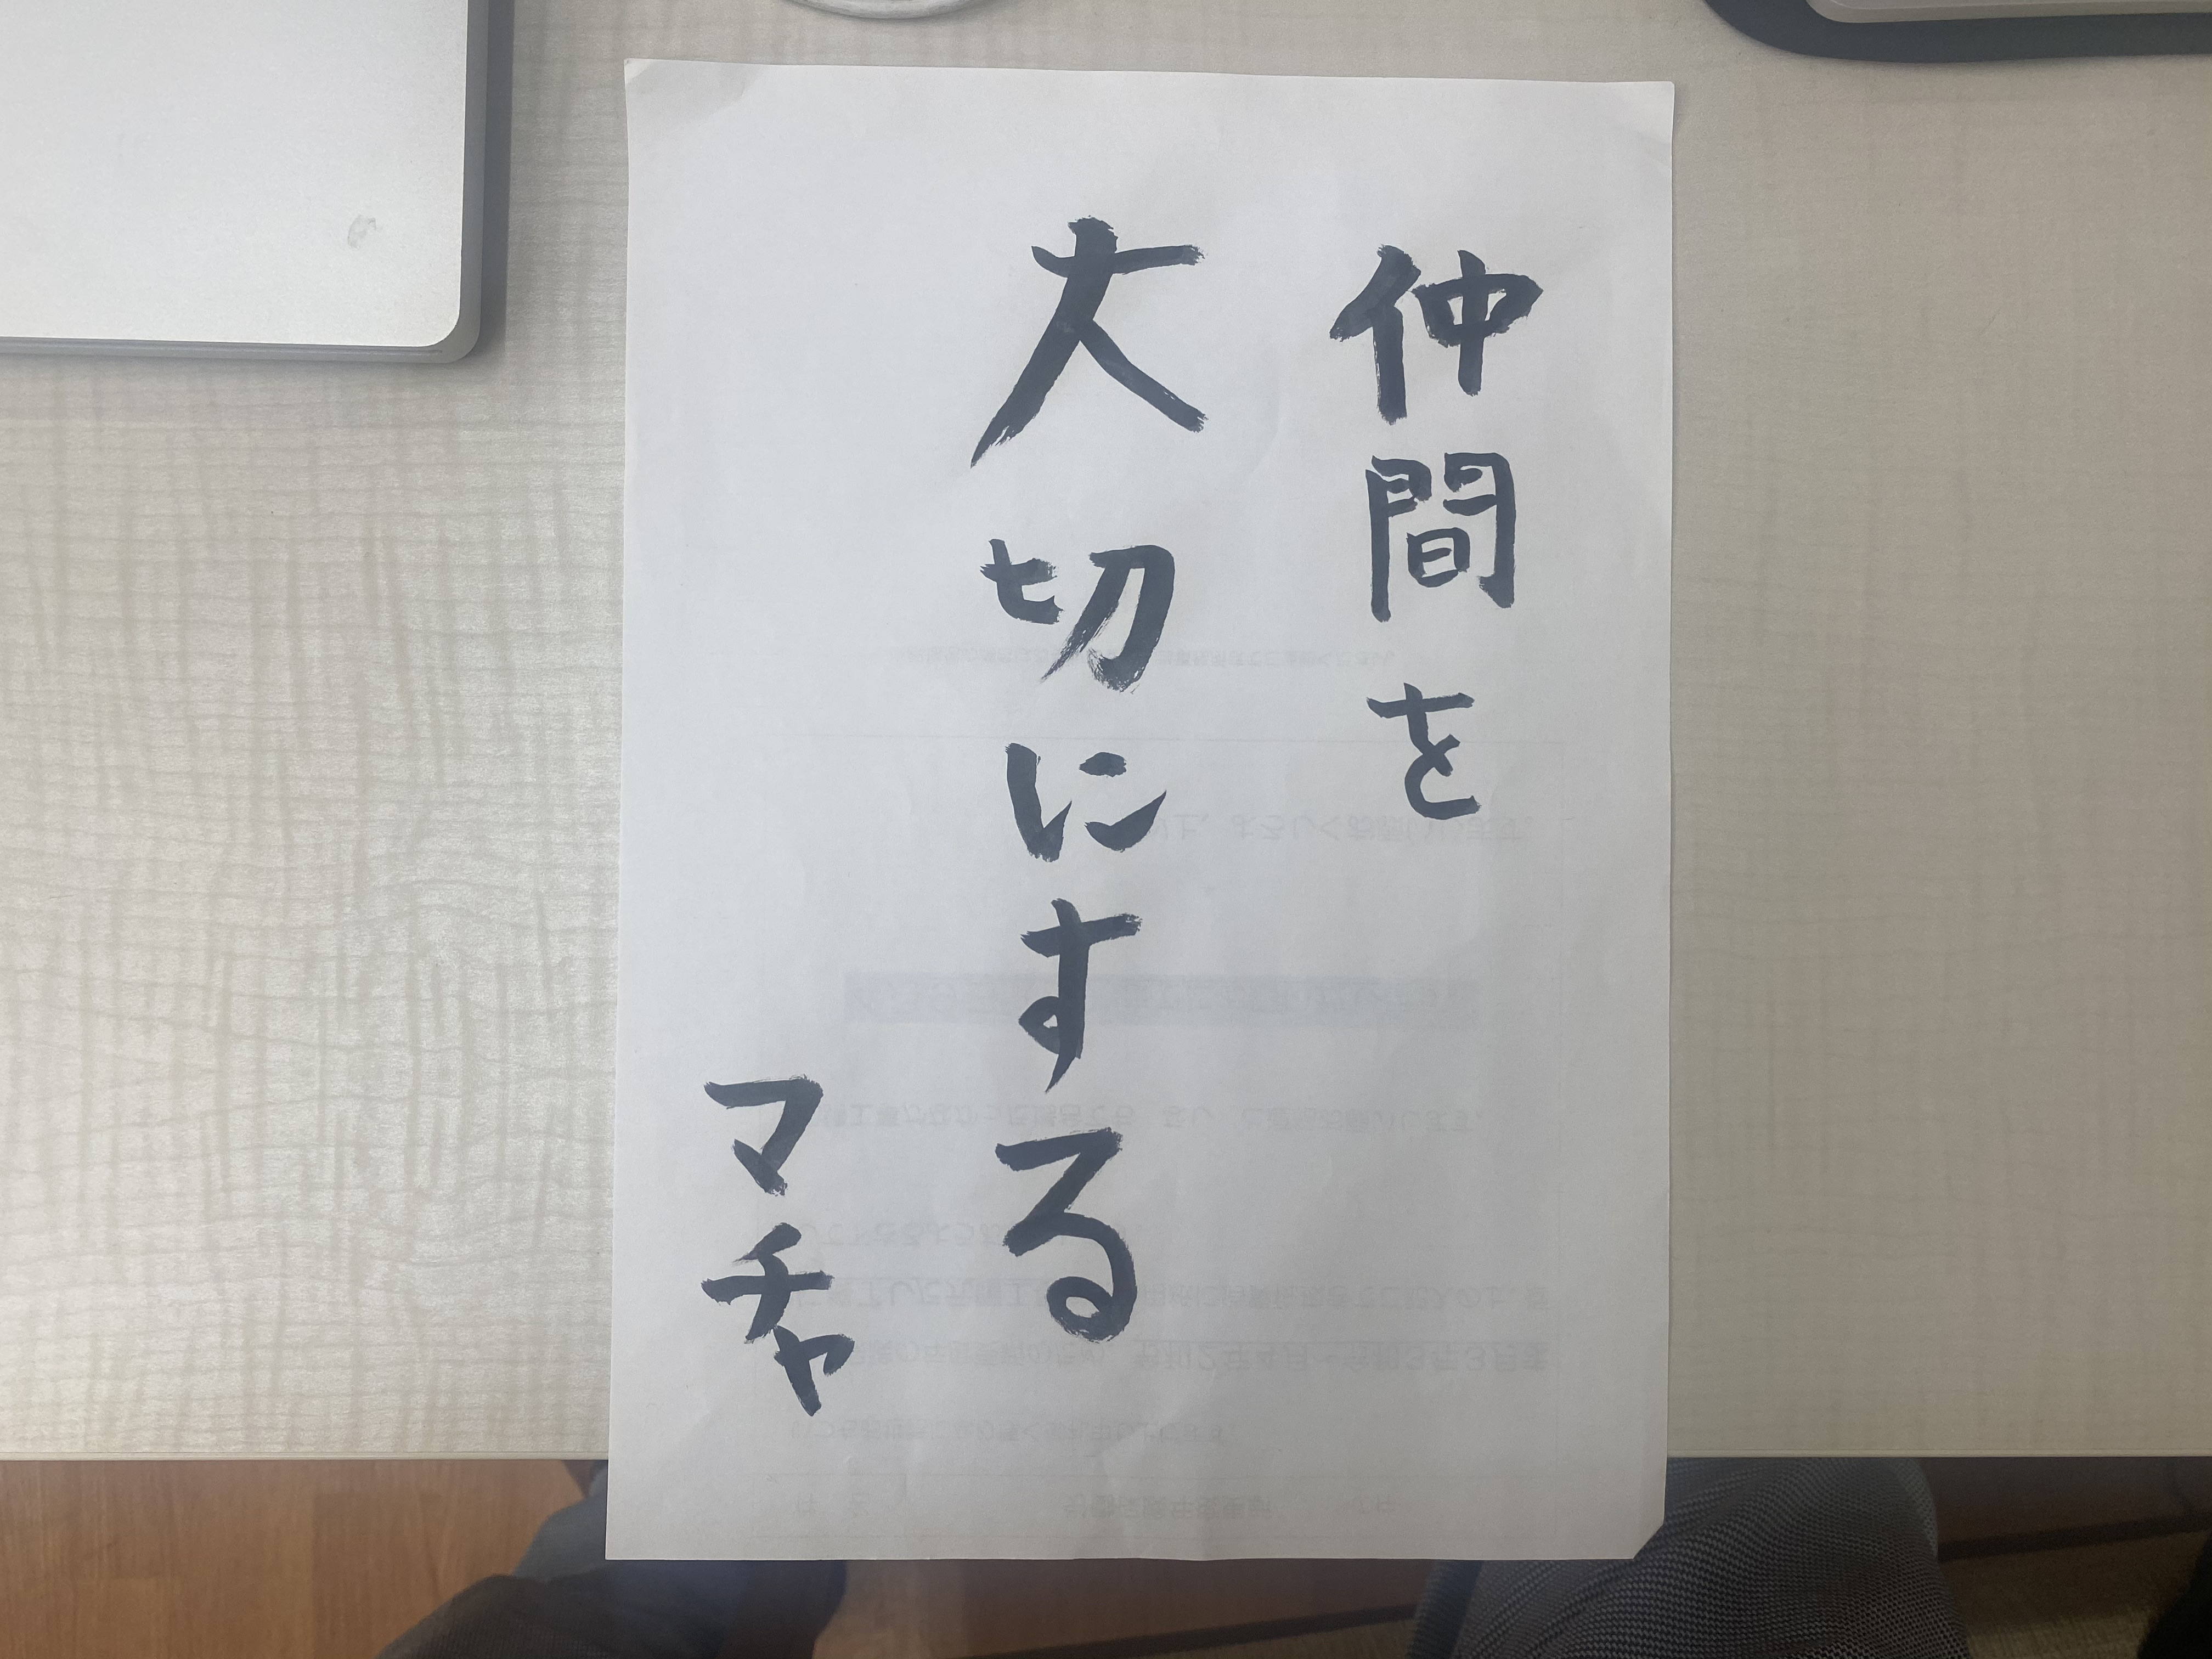 仲間を
大切にする
マチャ